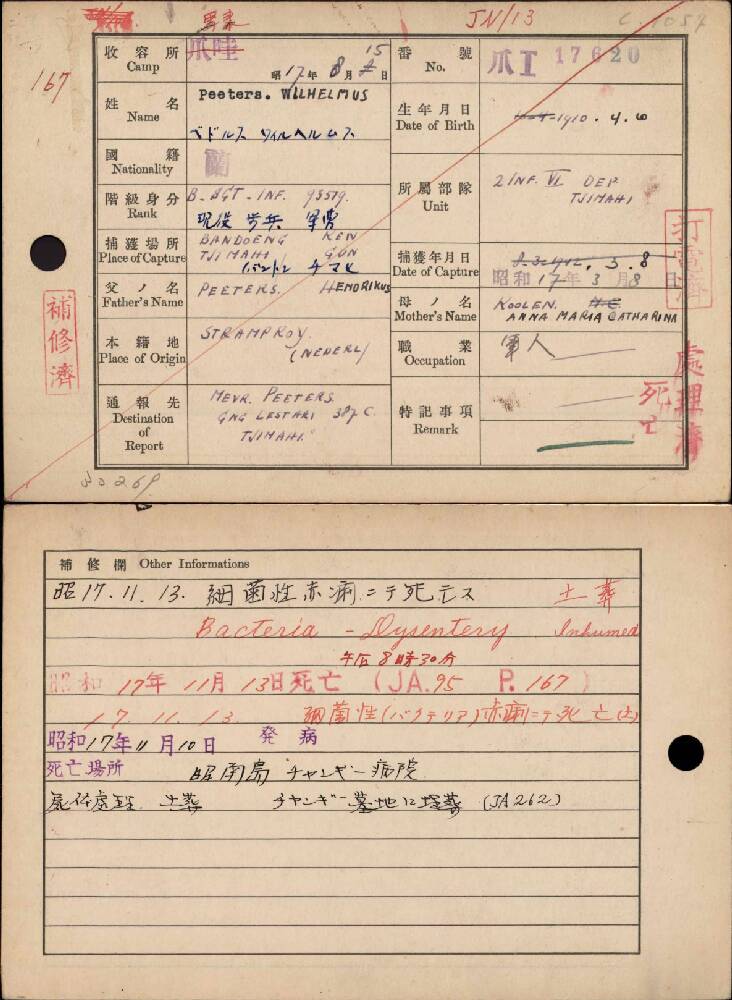 JN/13
C.1057
167
收容所 Camp
爪哇
昭17年8月15日
番號 No.
爪I 17620
姓名 Name
Peeters. WILHELMUS
ペドルス ウィルヘルムス
生年月日 Date of Birth
1910.4.6
國籍 Nationality
蘭
階級身分 Rank
B-SGT-INF. 93579.
現役 歩兵 軍曹
所屬部隊 Unit
2 INF. VI DEP
TJIMAHI
捕獲場所 Place of Capture
BANDOENG KEN
TJIMAHI GUN
バンドン チマヒ
捕獲年月日 Date of Capture
昭和17年3月8日
父ノ名 Father's Name
PEETERS. HENDRIKUS
母ノ名 Mother's Name
KOOLEN.
ANNA MARIA CATHARINA
本籍地 Place of Origin
STRAMPROY.
(NEDERL)
職業 Occupation
軍人
通報先 Destination of Report
MEVR. PEETERS.
GNG LESTARI 387 C.
TJIMAHI.
特記事項 Remark
補修濟
打電濟
處理濟
死亡
補修欄 Other Informations
昭17.11.13. 細菌性赤痢ニテ死亡ス 土葬
Bacteria - Dysentery Inhumed
午后8時30分
昭和17年11月13日死亡 (JA.95 P.167)
17.11.13 細菌性(バクテリア)赤痢ニテ死亡(土)
昭和17年11月10日 発病
死亡場所 昭南島チャンギー病院
屍体處理 土葬 チヤンギー墓地ニ埋葬 (JA262)